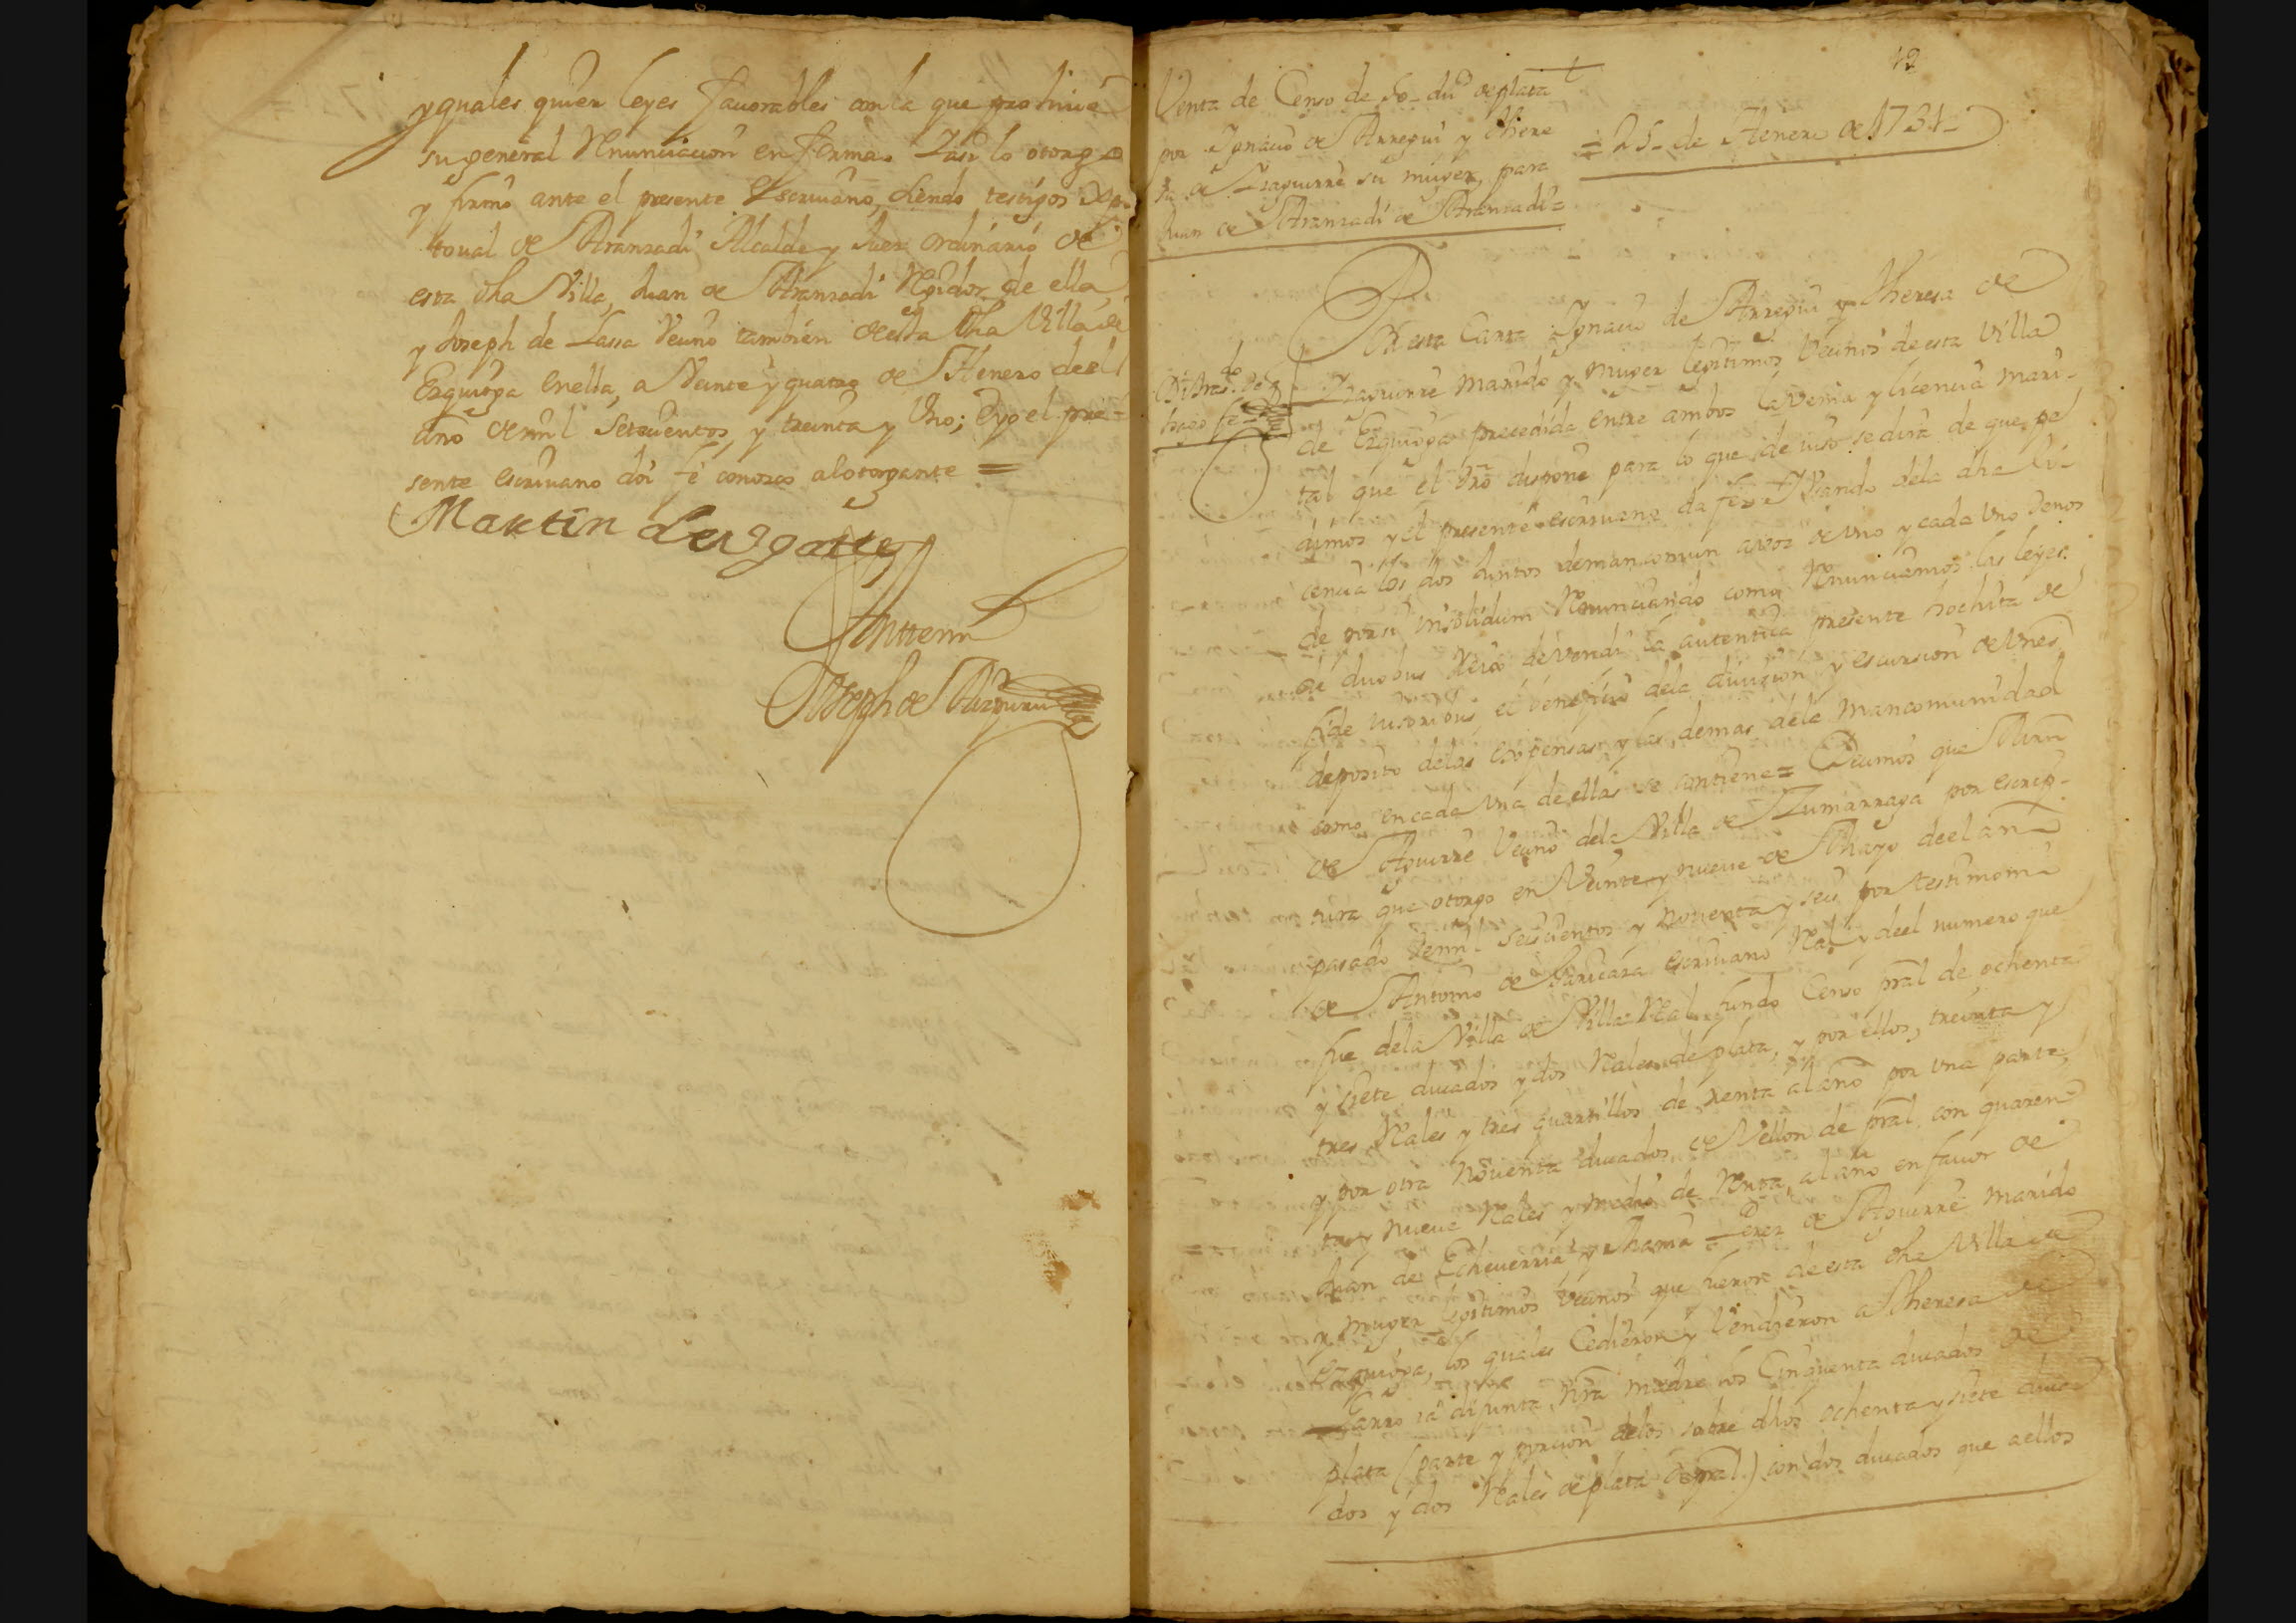 y quales quier leyes favorables con la que prohive
su general Renunciacion en forma. Y asi lo otorgo
y firmo ante el presente escrivano, siendo testigos Xp-
toual de Aranzadi Alcalde y Juez ordinario de
esta dha Villa, Juan de Aranzadi Rexidor de ella,
y Joseph de Lassa Vecino tambien desta dha Villa de
Ezquioga en ella, a Veinte y quatro de Henero de el
año de mil Setecientos, y treinta y Uno; E yo el pre-
sente escrivano doi fe conozco al otorgante =
Martin de
Antemi
Joseph de
12
Venta de Censo de 50 dus de plata
por Ignacio de Arregui y There
sa de Yzaguirre su muger, para
Juan de Aranzadi de Aranzadi =
= 25 de Henero de 1731 -
Por esta Carta Ignacio de Arregui y Theresa de
Yzaguirre Marido y Muger legitimos Vecinos de esta Villa
de Ezquioga precedida entre ambos la venia y licencia mari-
tal que el dro dispone para lo que de iuso se dira de que pe
dimos y el presente escrivano da fee y Usando dela dha li-
cencia los dos Juntos de mancomun a voz de uno y cada uno de nos
de por si insolidum Renunciando como Renunciamos las leyes
de duobus Reis devendi la autentica presente hochita de
fide iusoribus el beneficio dela divizion y escursion de Vnes
deposito delas expensas y las demas de la mancomunidad
como en cada una de ellas se contiene = Decimos que
de Aguirre Vecino dela Villa de Zumarraga por escrip-
tura que otorgo en Veinte y nueve de Mayo de el año
pasado de mil seiscientos y noventa y seis por testimonio
de Antonio de escrivano Real y de el numero que
fue dela Villa de Villa Real fundo Censo pral de ochenta
y siete ducados y dos Reales de plata, y por ellos, treinta y
tres Reales y tres quartillos de renta al año por una parte,
y por otra Noventa ducados de Vellon de pral con quaren
ta y nueve Reales y medio de Renta al año en favor de
Juan de Echeverria y Maria Perez de Aguirre Marido
y muger legitimos Vecinos que fueron de esta dha Villa de
Ezquioga, los quales Cedieron y Vendieron a Theresa de
ia difunta Nra madre los Cinquenta ducados de
plata (parte y porcion delos sobre dhos ochenta y siete duca
dos y dos Reales de plata de pral) con dos ducados que a ellos